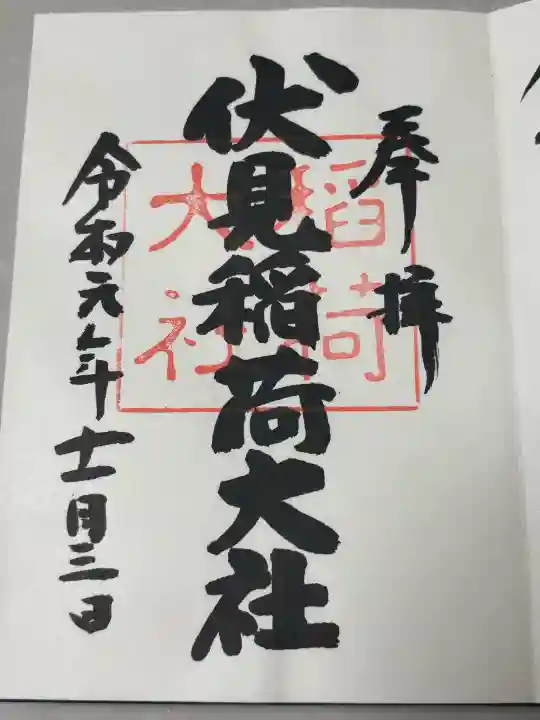 奉拝
伏見稲荷大社
稲荷
大社
令和元年十一月三日